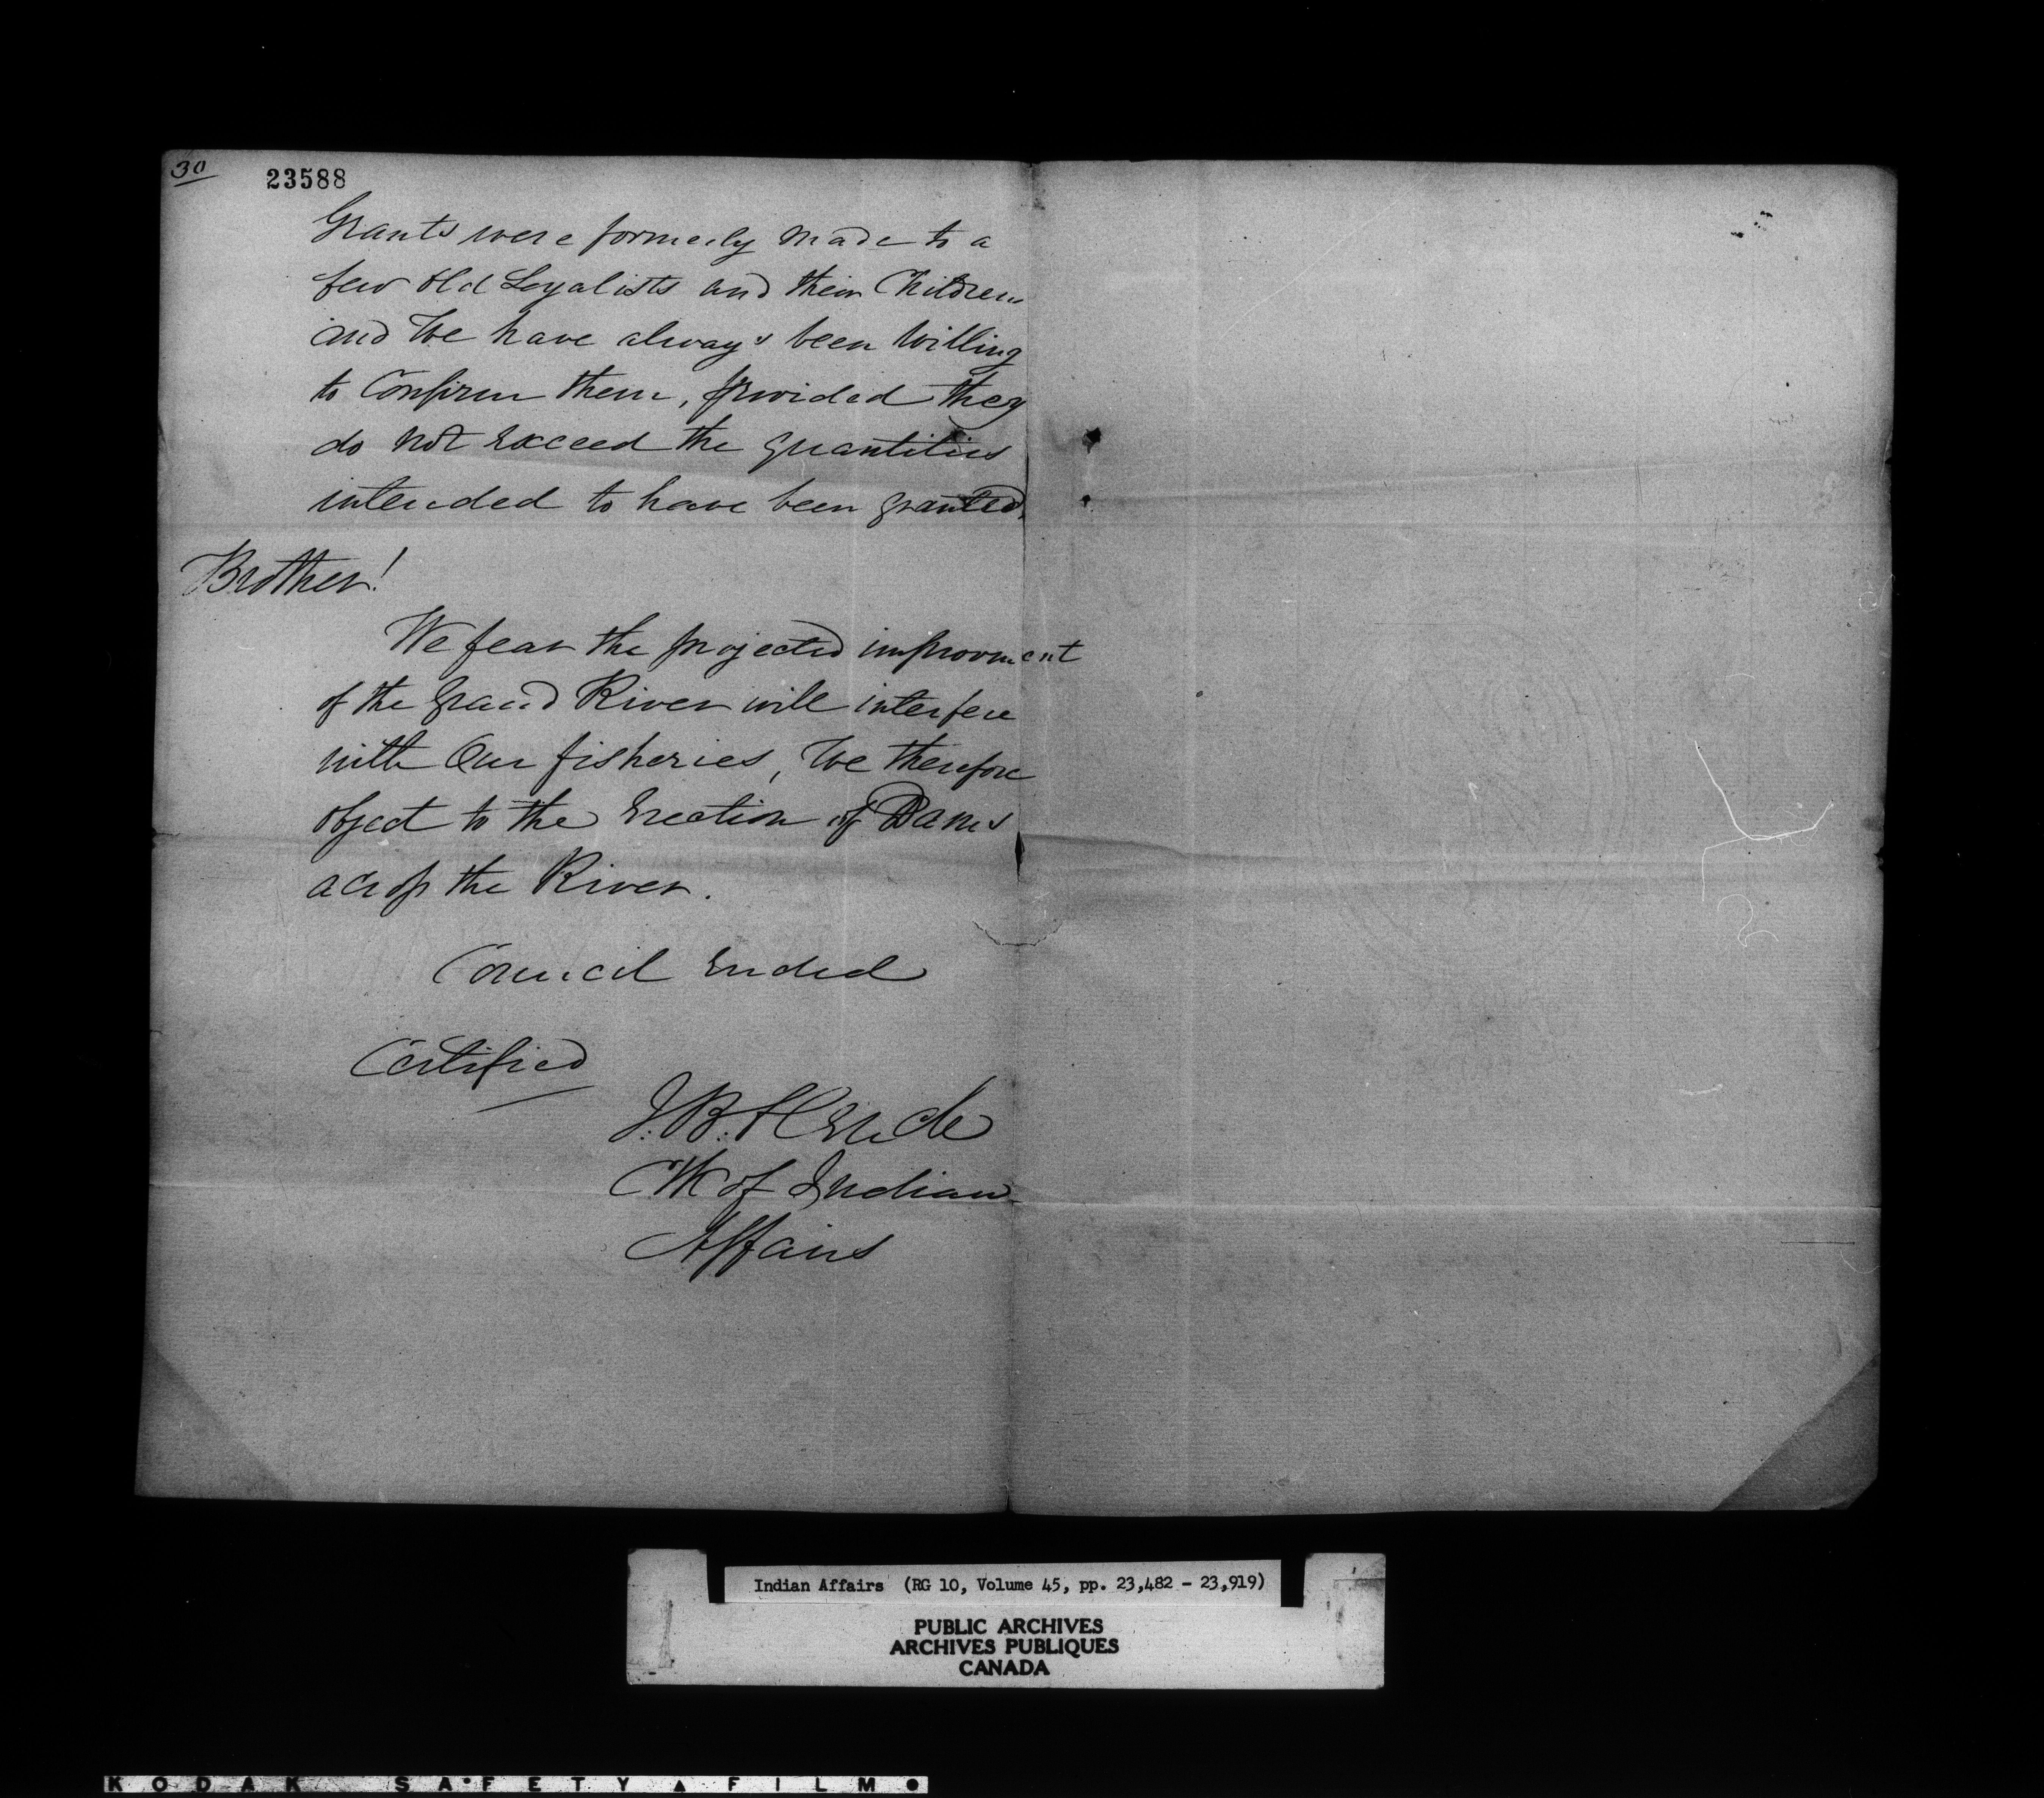 30
23588
Grants were formerly made to a
few old Loyalists and their Children
and We have always been Willing
to Confirm them, provided they
do not exceed the quantities
intended to have been granted.
Brother!
We fear the projected improvment
of the Grand River will interfere
with Our fisheries, We therefore
object to the Erection of Dams
across the River.
Council Ended
Certified
J.B. Clench
Clk of Indian
Affairs
Indian Affairs (RG 10, Volume 45, pp. 23,482 - 23,919)
PUBLIC ARCHIVES
ARCHIVES PUBLIQUES
CANADA
KODAK SAFETY FILM